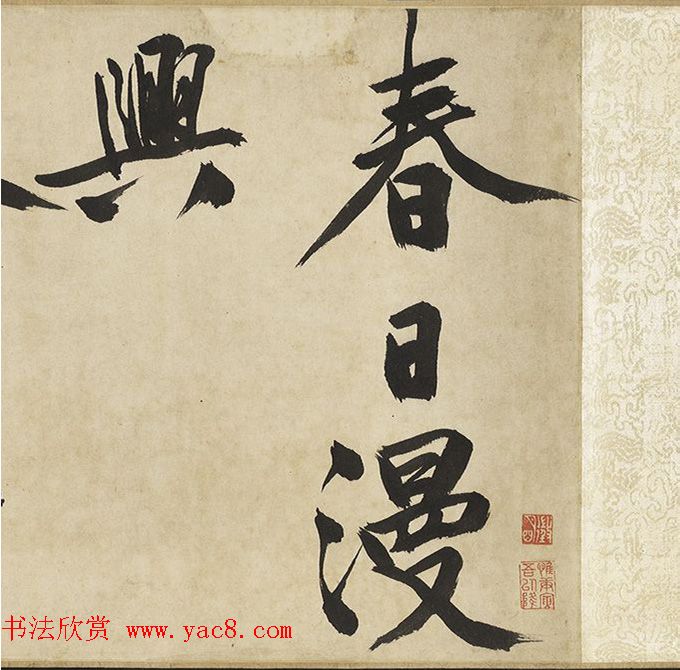 春日漫
興
书法欣赏 www.yac8.com